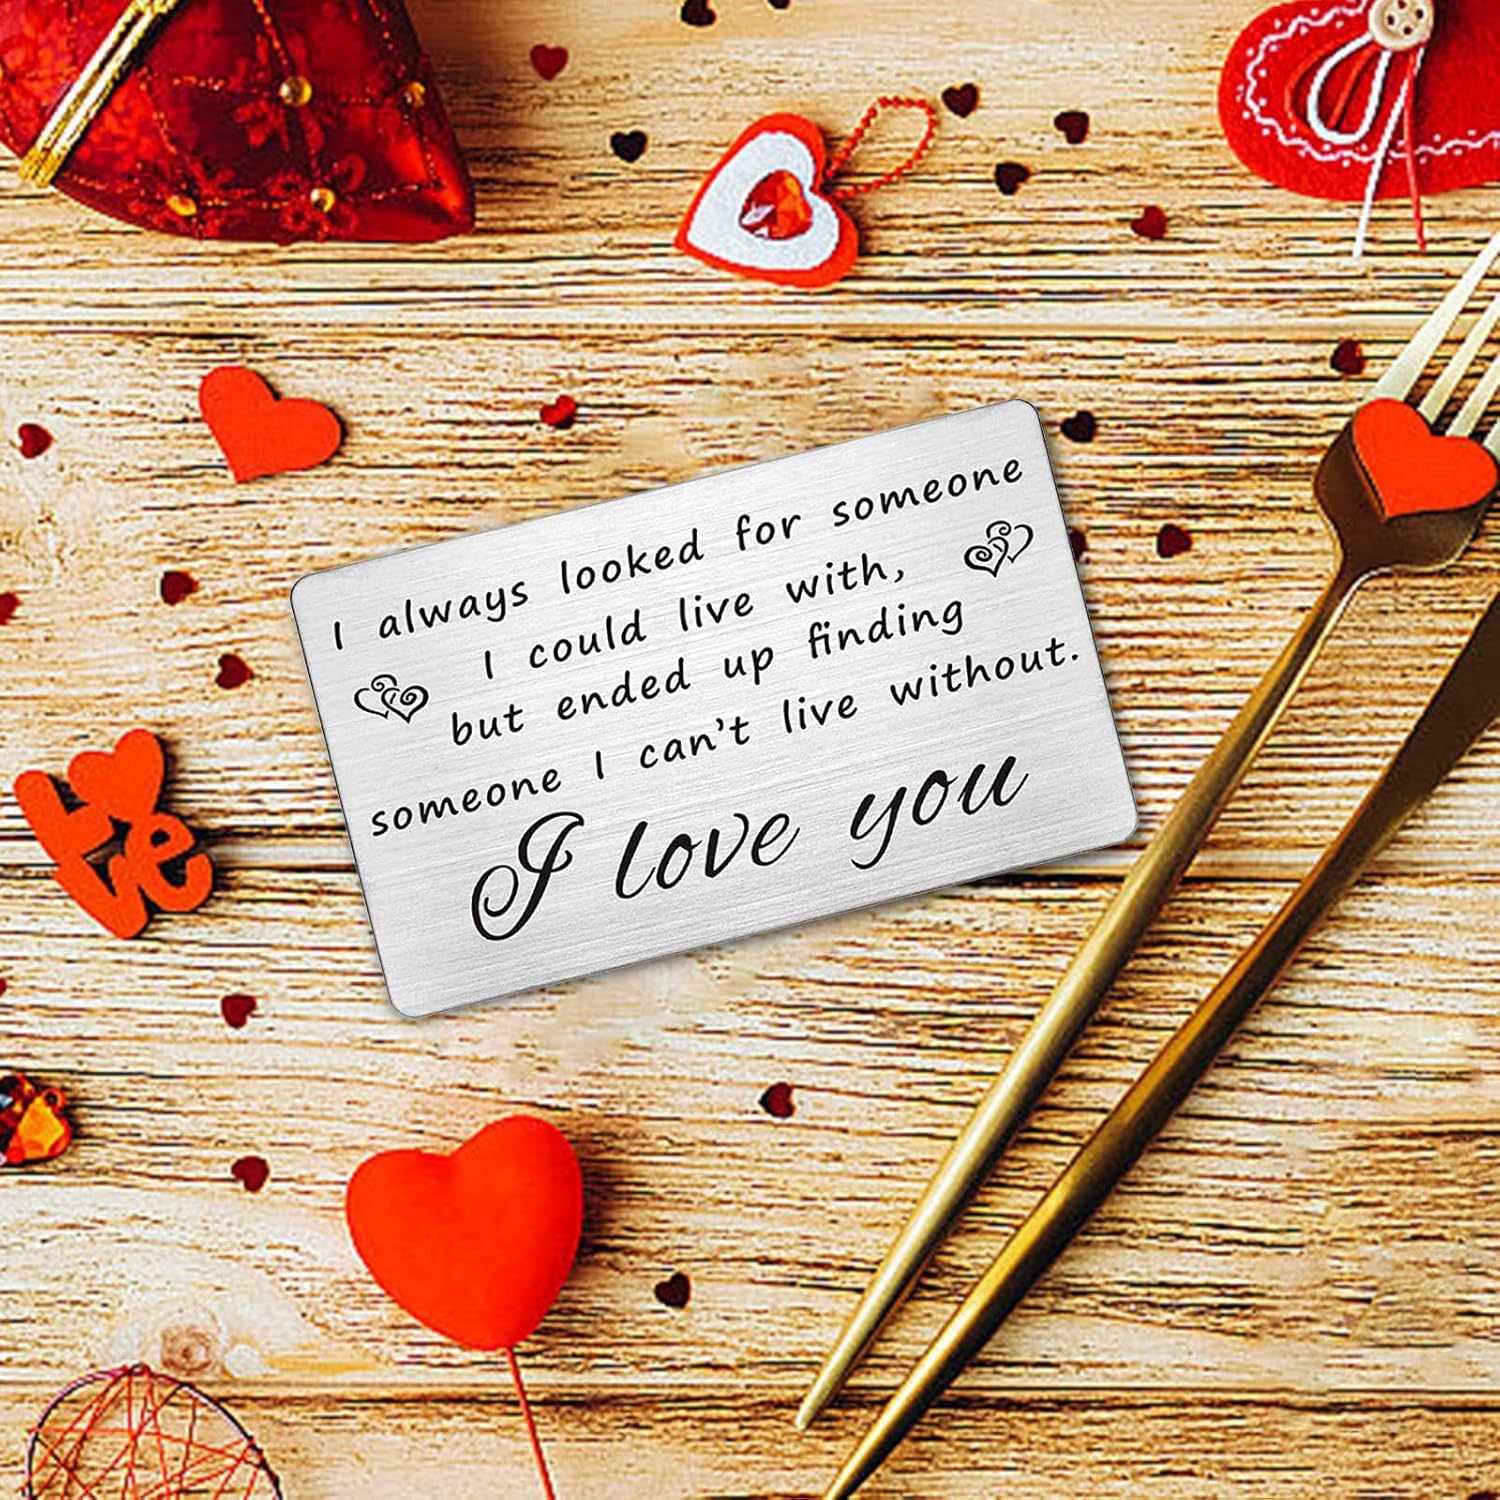 I always looked for someone
I could live with,
but ended up finding
someone I can't live without.
I love you
love